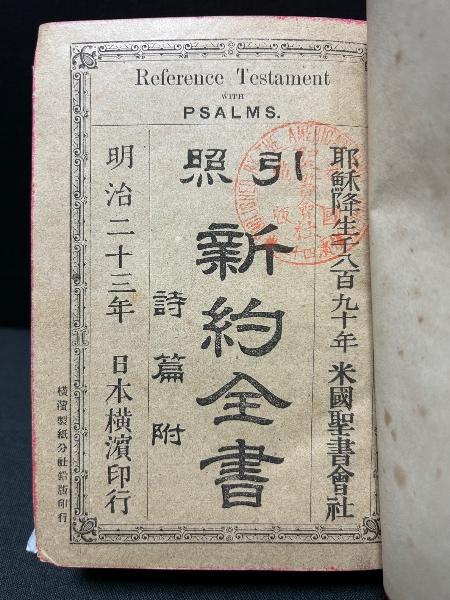 Reference Testament
WITH
PSALMS.
耶穌降生千八百九十年 米國聖書會社
引照
新約全書
詩篇附
明治二十三年 日本橫濱印行
橫濱製紙分社鉛版印行